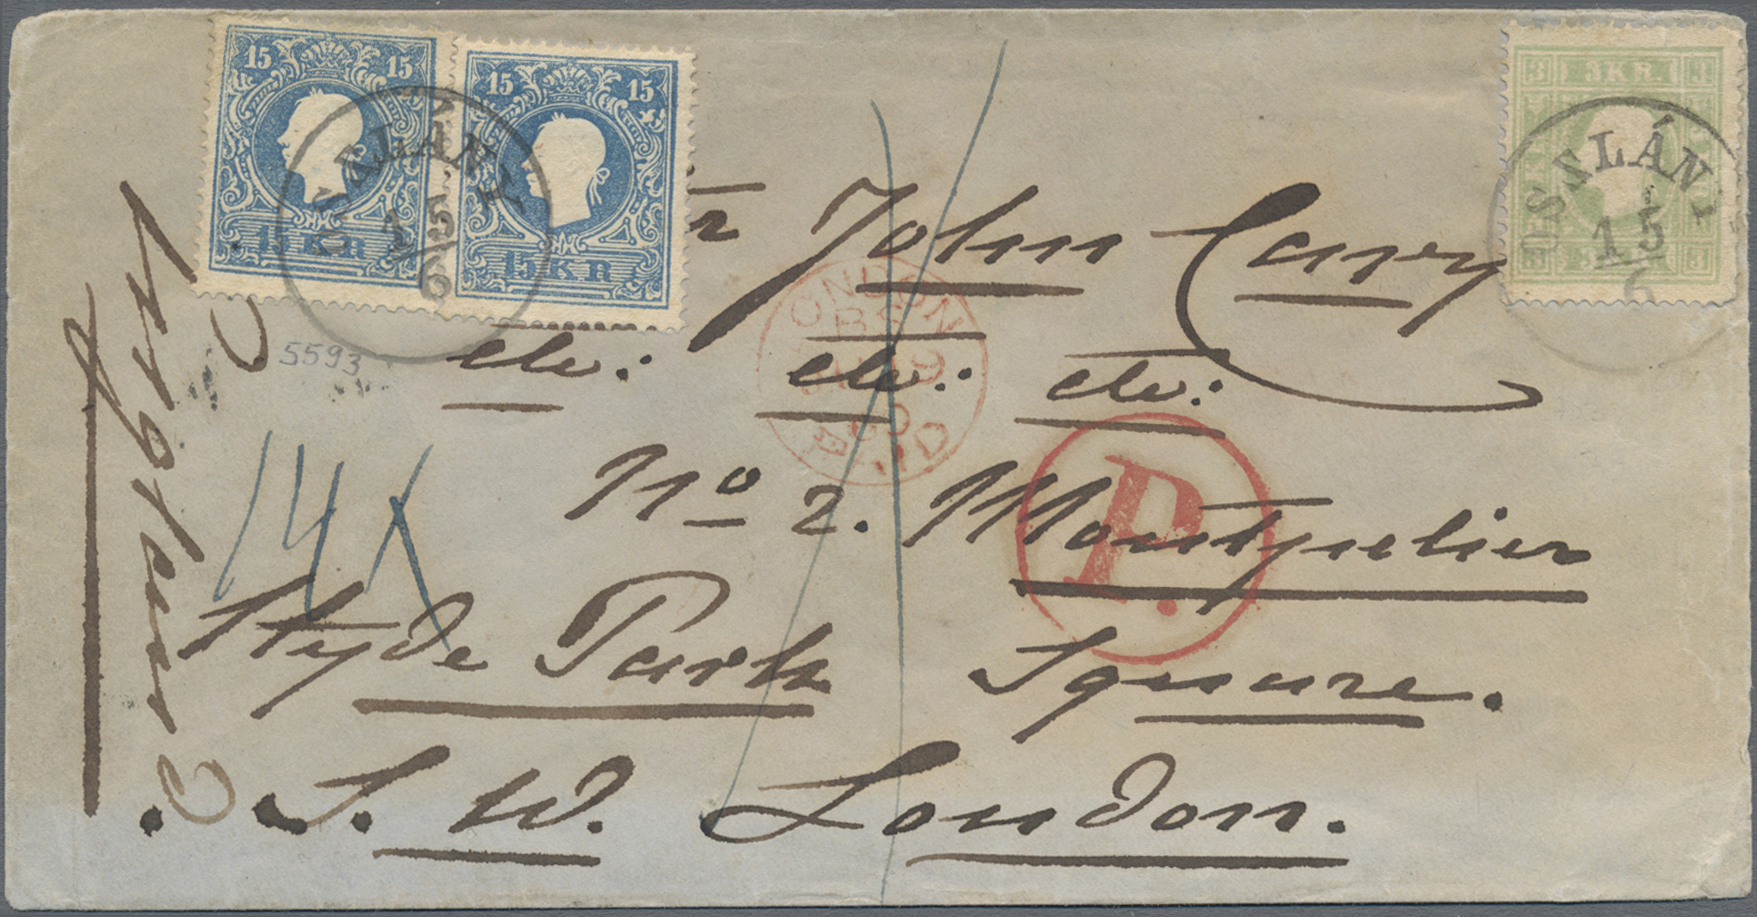 15 15
15 KR
15 15
15 KR
3 3 KR. 3
3 3
15
6
15
6
John Cary
5593
etc: etc: etc:
LONDON
PAID
14 x
No 2. Montpelier
P.
Hyde Park Square.
S. W. London.